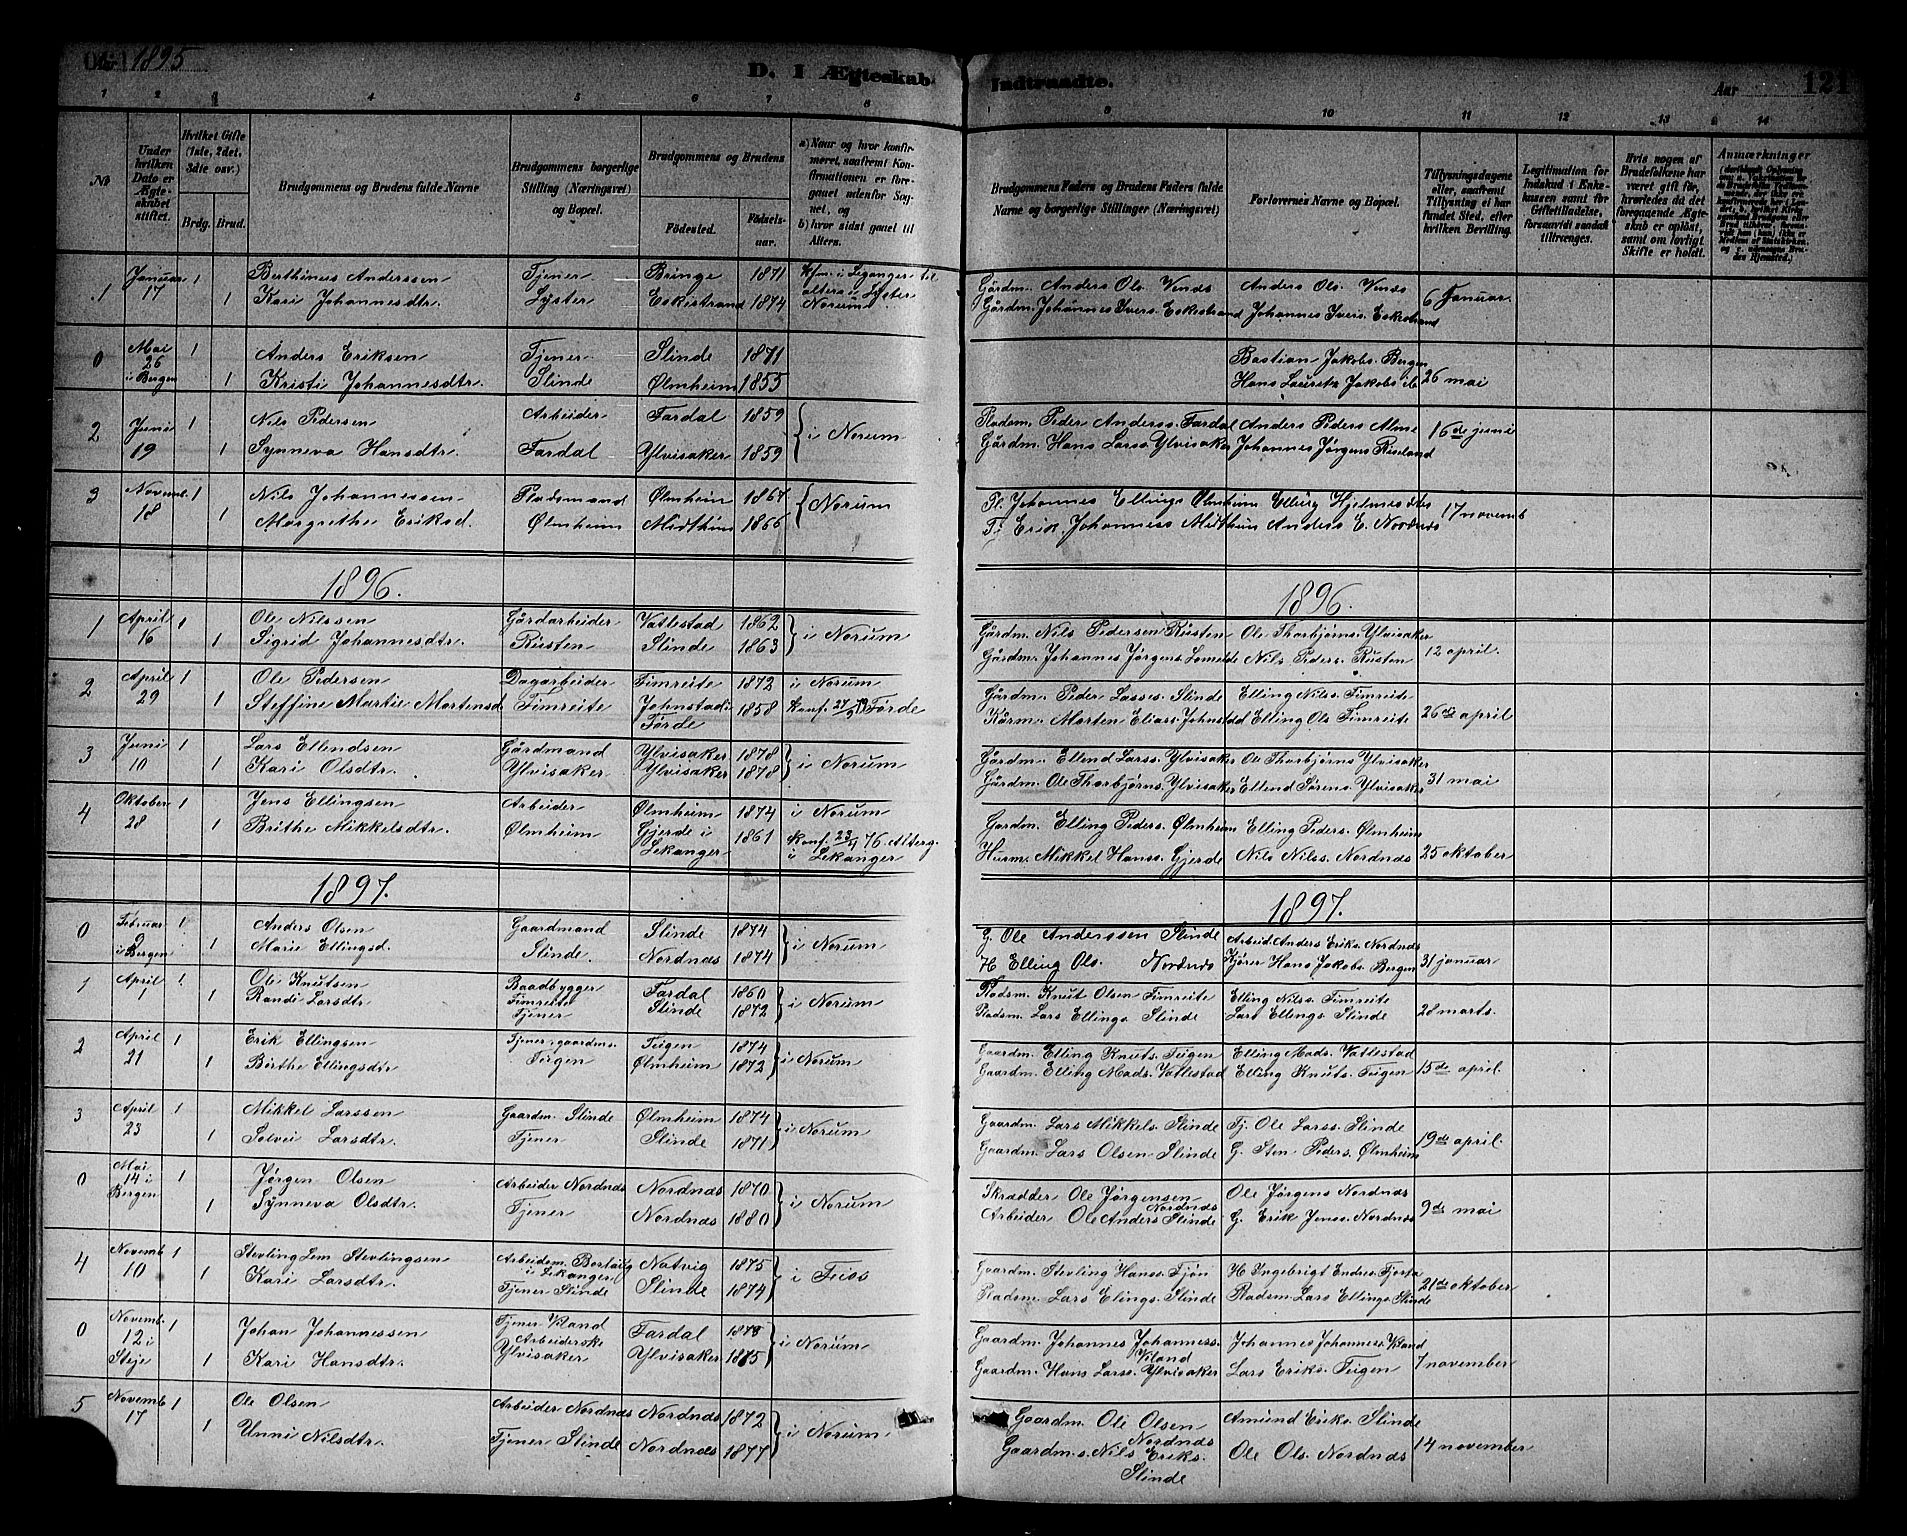 Aar 1895
D. I Ægteskab Indtraadte.
Aar 121
1 2 3 4 5 6 7 8 9 10 11 12 13 14
No
Under hvilken Dato er Ægteskabet stiftet.
Hvilket Gifte (1ste, 2det, 3dte osv.)
Brdg. Brud.
Brudgommens og Brudens fulde Navne
Brudgommens borgerlige Stilling (Næringsvei) og Bopæl.
Brudgommens og Brudens
Födested. Födselsaar.
a) Naar og hvor konfirmeret, saafremt Konfirmationen er foregaaet udenfor Sognet, og
b) hvor sidst gaaet til Alters.
Brudgommens Faders og Brudens Faders fulde Navne og borgerlige Stillinger (Næringsvei)
Forlovernes Navne og Bopæl.
Tillysningsdagene eller, saafremt Tillysning ei har fundet Sted, efter hvilken Bevilling.
Legitimation for Indskud i Enkekassen samt for Giftetilladelse, forsaavidt saadan tiltrænges.
Hvis nogen af Brudefolkene har været gift før, hvorledes da det foregaaende Ægteskab er opløst, samt om lovligt Skifte er holdt.
Anmærkninger
1 Januar 17 1 Berthines Anderssen Tjener Bringe 1871 Kfm. i Leganger til Gårdm. Anders Ols. Vinds Anders Ols. Vinds 6 Januar.
1 Kari Johannesdtr. Lyster Eskestrand 1874 alters i Lyster Norum Gårdm. Johannes Ivers. Eskestrand Johannes Ivers. Eskestrand
0 Mai 26 i Bergen 1 Anders Eriksen Tjener Slinde 1871 Bastian Jakobs. Bergen
1 Kristi Johannesdtr. Slinde Ølmheim 1855 Hans Lauritz Jakobs ib. 26 mai
2 Juni 19 1 Nils Pedersen Arbeider Fardal 1859 i Norum Pladsm. Peder Anderss. Fardal Anders Peders Alme 16de juni
1 Synneva Hansdtr. Fardal Ylvisaker 1859 Gårdm. Hans Larss. Ylvisaker Johannes Jørgens Riseland
3 Novemb. 18 1 Nils Johannessen Pladsmand Ølmheim 1867 i Norum Pl. Johannes Ellings Ølmheim Elling Hjelmes 17 novemb
1 Margrethe Eriksd. Ølmheim Midthun 1866 Tj. Erik Johanness Midthun Anders E. Nordnæs
1896. 1896.
1 April 16 1 Ole Nilssen Gårdarbeider Vatlestad 1862 i Norum Gårdm. Nils Pedersen Rusten Ole Thorbjørns. Ylvisaker 12 april.
1 Sigrid Johannesdtr. Rusten Slinde 1863 Gårdm. Johannes Jørgens Lomelde Nils Peders. Rusten
2 April 29 1 Ole Pedersen Dagarbeider Fimreite 1872 i Norum Gårdm. Peder Lasses. Slinde Elling Nilss. Fimreite
1 Steffine Martie Mortensd Fimreite Johnstad i Førde 1858 Konf. Førde Kårm. Morten Elias. Johnstad Elling Ols Fimreite 26de april
3 Juni 10 1 Lars Ellendsen Gårdmand Ylvisaker 1878 i Norum Gårdm. Ellend Larss. Ylvisaker Ole Thorbjørns Ylvisaker
1 Kari Olsdtr. Ylvisaker Ylvisaker 1878 Gårdm. Ole Thorbjørns. Ylvisaker Ellend Sørens. Ylvisaker 31 mai
4 Oktober 28 1 Jens Ellingsen Arbeider Ølmheim 1874 i Norum Gardm. Elling Peders. Ølmheim Elling Peders. Ølmheim
1 Brithe Mikkelsdtr. Ølmheim Gjerde i Lekanger 1861 Konf. 23/4 76. Alterg. i Lekanger Husm. Mikkel Hanss. Gjerde Nils Nilss. Nordnæs 25 oktober
1897. 1897.
0 Februar 9 i Bergen 1 Anders Olsen Gaardmand Slinde 1874 i Norum G. Ole Anderssen Slinde Arbeid. Anders Eriks. Nordnæs
1 Marie Ellingsd. Slinde. Nordnæs 1874 H Elling Ols. Nordnæs Kjører Hans Jakobs. Bergen 31 januar
1 April 1 1 Ole Knutsen Baadbygger Fimreite Fardal 1860 i Norum Pladsm. Knut Olsen Fimreite Elling Nilss. Fimreite
1 Randi Larsdtr Tjener Slinde 1872 Pladsm. Lars Ellings. Slinde Lars Ellings. Slinde 28 marts.
2 April 21 1 Erik Ellingsen Tjener, gaardms. Teigen 1874 i Norum Gaardm. Elling Knuts. Teigen Elling Mads. Vatlestad
1 Birthe Ellingsdtr Teigen Ølmheim 1872 Gaardm. Elling Mads. Vatlestad Elling Knuts. Teigen 15de april.
3 April 23 1 Mikkel Larssen Gaardm. Slinde Ølmheim 1874 i Norum Gaardm. Lars Mikkels. Slinde Tj. Ole Larss. Slinde
1 Solvei Larsdtr. Tjener Slinde 1871 Gaardm. Lars Olsen Slinde G. Sten Peders. Ølmheim 19de april.
0 Mai 14 i Bergen 1 Jørgen Olsen Arbeider Nordnæs Nordnæs 1870 i Norum Skrædder Ole Jørgensen Nordnæs Ole Jørgens Nordnæs
1 Synneva Olsdtr. Tjener Nordnæs 1880 Arbeider Ole Anders Slinde G. Erik Jenss. Nordnæs 9de mai
4 Novemb 10 1 Stevling Lem Stevlingsen Arbeidsm. i Lekanger Notvig 1875 i Feios Gaardm. Stevling Hanss. Fjøn H Ingebrigt Endres.
1 Kari Larsdtr. Tjener Slinde Slinde 1874 Pladsm. Lars Elings. Slinde Pladsm. Lars Ellings Slinde 21de oktober
0 Novemb. 12 i Steje 1 Johan Johannessen Tjener Viland Fardal 1878 i Norum Gaardm. Johannes Johanness. Viland Johannes Johanness. Viland
1 Kari Hansdtr. Arbeiderske Ylvisaker Ylvisaker 1875 Gaardm. Hans Larss. Ylvisaker Lars Eriks. Teigen 7 november
5 Novemb 17 1 Ole Olsen Arbeider Nordnæs Nordnæs 1872 i Norum Gaardm. Ole Olsen Nordnæs Amund Eriks. Slinde
1 Unni Nilsdtr. Tjener Slinde Nordnæs 1877 Gaardm. s. Nils Eriks. Slinde Ole Ols. Nordnæs 14 november